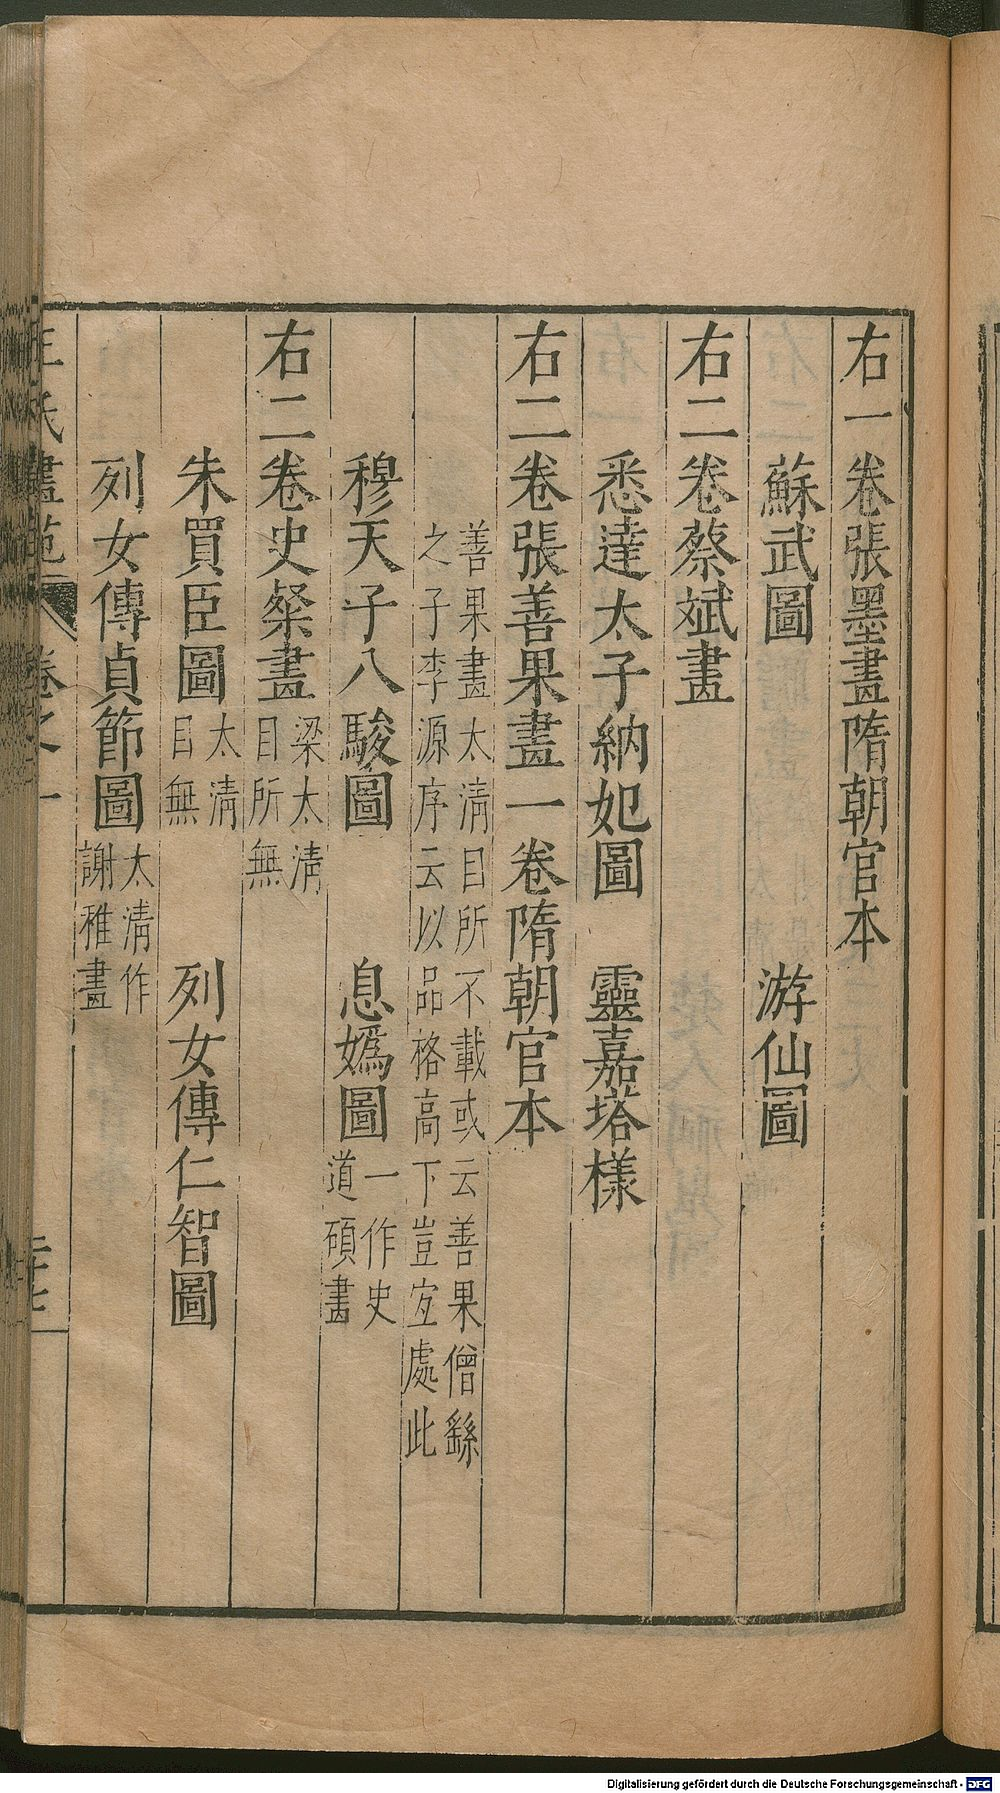 右一卷張墨畫隋朝官本
蘇武圖　游仙圖
右二卷蔡斌畫
悉達太子納妃圖　靈嘉塔樣
右二卷張善果畫一卷隋朝官本
善果畫太清目所不載或云善果僧繇
之子李源序云以品格高下豈宜處此
穆天子八駿圖　息嬀圖一作史
道碩畫
右二卷史粲畫梁太清
目所無
朱買臣圖太清
目無　列女傳仁智圖
列女傳貞節圖太清作
謝稚畫
王氏畫苑　卷之一　二十七
Digitalisierung gefördert durch die Deutsche Forschungsgemeinschaft - DFG